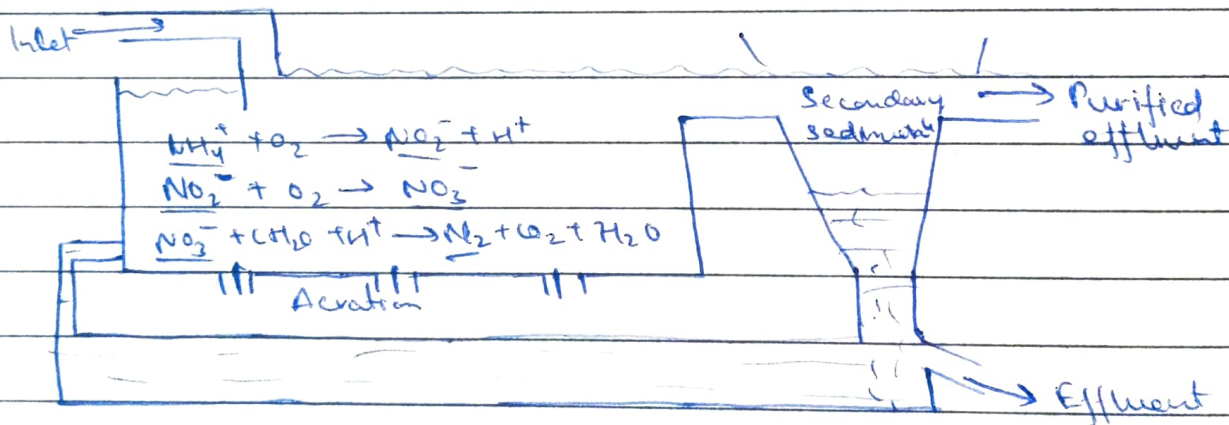 Inlet
Secondary
sedimentn
Purified
effluent
NH₄⁺ + O₂ → NO₂⁻ + H⁺
NO₂⁻ + O₂ → NO₃⁻
NO₃⁻ + CH₂O + H⁺ → N₂ + CO₂ + 7H₂O
Aeration
Effluent